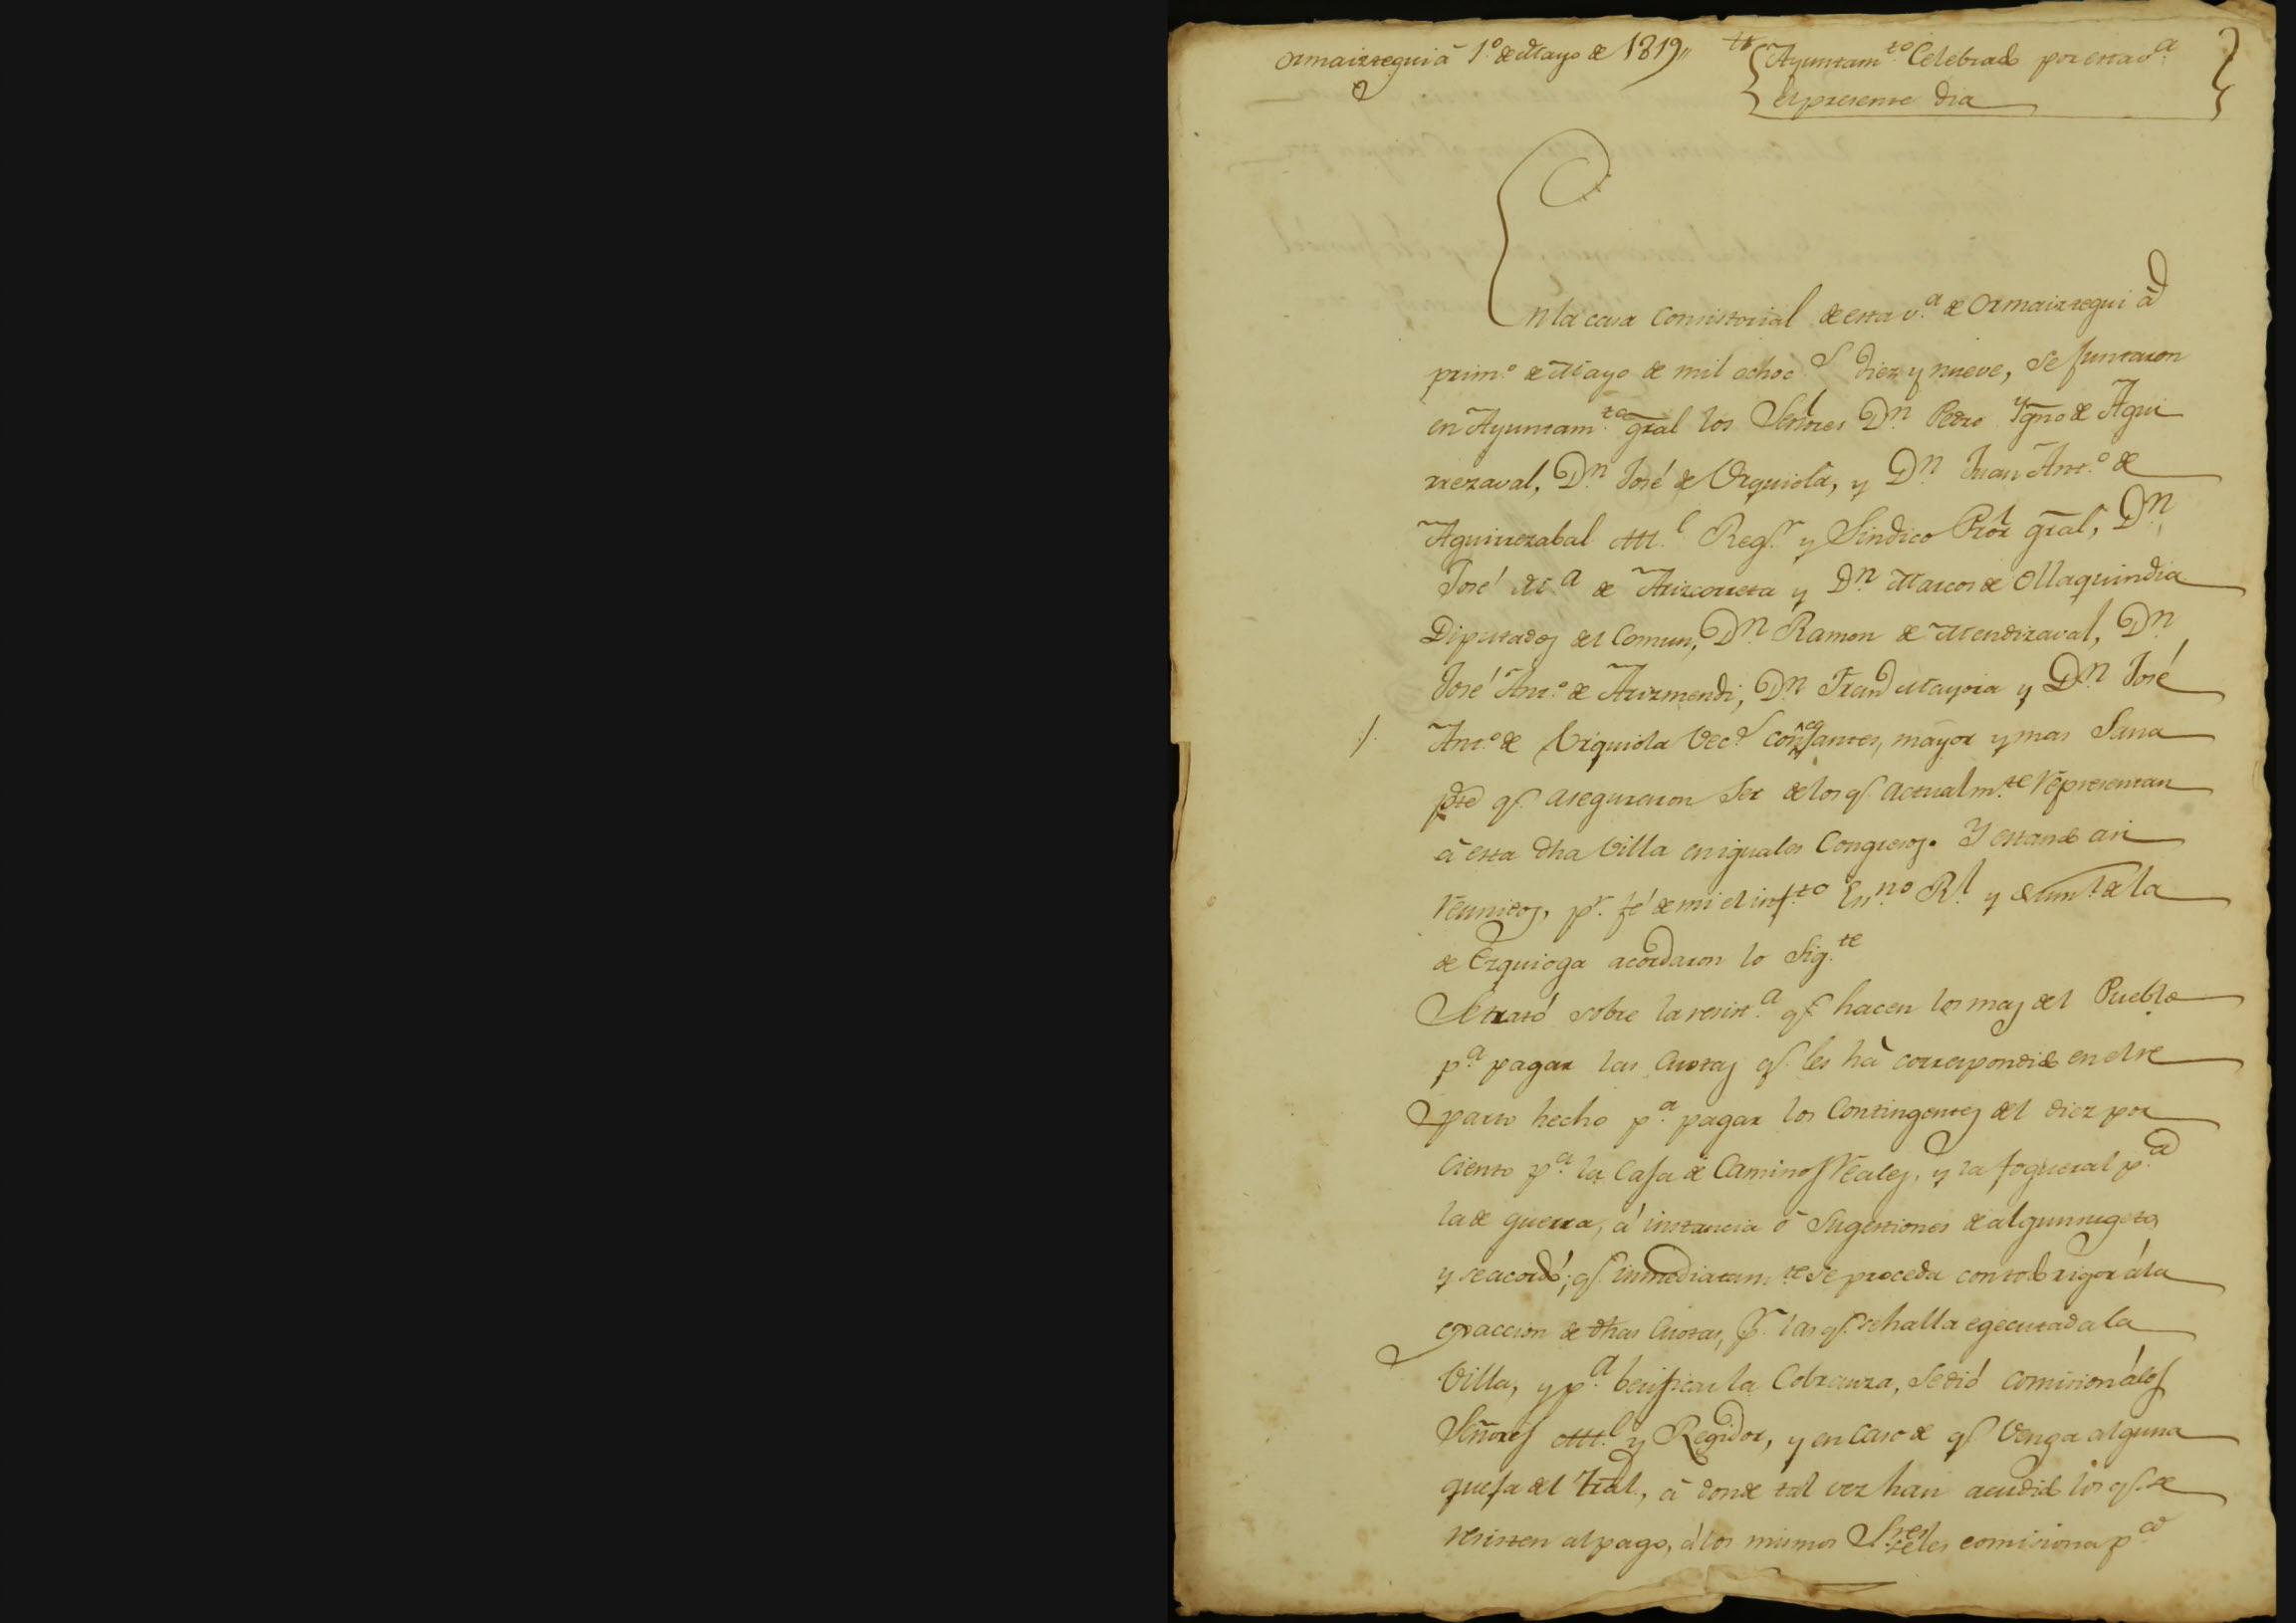 Ormaiztegui á 1º de Mayo de 1819,,
Ayuntamto Celebrado por esta v.a
el presente dia
En la casa Consistorial de esta v.a de Ormaiztegui á
prim.o de Mayo de mil ochoc.s diez y nueve, se juntaron
en Ayuntam.to gral los Señores Dn Pedro Ygno de Agui
rrezaval, Dn José de Urquiola, y Dn Juan Ant.o de
Aguirrezabal All.e Reg.r y Sindico Pror gral, Dn
José M.a de Arizcorreta y Dn Marcos de Ollaquindia
Diputados del Comun, Dn Ramon de Mendizaval, Dn
José Ant.o de Arizmendi, Dn Fran.co Mayora y Dn José
Ant.o de Urquiola Vec.s concejantes, mayor y mas Sana
pte q.e aseguraron Ser de los q.e actualm.te representan
á esta dha Villa en iguales Congresos. Y estando asi
reunidos, p.r fé de mi el inf.to Es.no R.l y de la
de Ezquioga acordaron lo Sig.te
Se trató sobre la resist.a q.e hacen los mas del Pueblo
p.a pagar las Cuotas q.e les há correspondido en el re
parto hecho p.a pagar los Contingentes del diez por
Ciento p.a la Caja de Caminos reales, y la fogueral p.a
la de guerra, á instancia ó Sugestiones de algun sugeto,
y se acordó; q.e inmediatam.te se proceda con todo rigor á la
exaccion de dhas Cuotas, p.r las q.e se halla egecutada la
Villa, y p.a berificar la Cobranza, se dió comision á los
Señores All.e y Regidor, y en Caso de q.e Venga alguna
queja del Tral, á donde tal vez han acudido los q.e se
resisten al pago, á los mismos S.res se les comisiona p.a